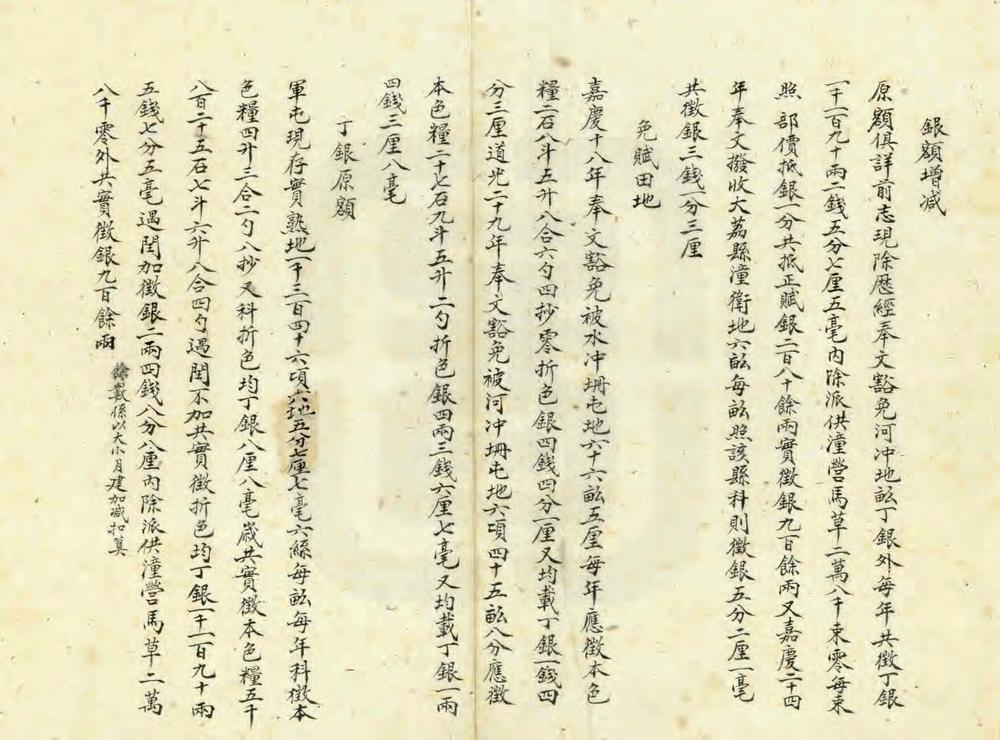 銀額增減
原額俱詳前志現除歷經奉文豁免河冲地畝丁銀外每年共徵丁銀
一千一百九十兩二錢五分七厘五毫內除派供潼營馬草二萬八千束零每束
照　部價抵銀一分共抵正賦銀二百八十餘兩實徵銀九百餘兩又嘉慶二十四
年奉文撥收大荔縣潼衛地六畝每畝照該縣科則徵銀五分二厘一毫
共徵銀三錢一分三厘
免賦田地
嘉慶十八年奉文豁免被水冲坍屯地六十六畝五厘每年應徵本色
糧二石八斗五升八合六勺四抄零折色銀四錢四分一厘又均載丁銀一錢四
分三厘道光二十九年奉文豁免被河冲坍屯地六項四十五畝八分應徵
本色糧二十七石九斗五升二勺折色銀四兩三錢六厘七毫又均載丁銀一兩
四錢三厘八毫
丁銀原額
軍屯現存實熟地一千三百四十六項六地五分七厘七毫六絲每畝每年科徵本
色糧四升三合二勺八抄又科折色均丁銀八厘八毫歲共實徵本色糧五千
八百二十五石七斗六升八合四勺遇閏不加共實徵折色均丁銀一千一百九十兩
五錢七分五毫遇閏加徵銀二兩四錢八分八厘內除派供潼營馬草二萬
八千零外共實徵銀九百餘兩
餘數係以大小月建加减扣算